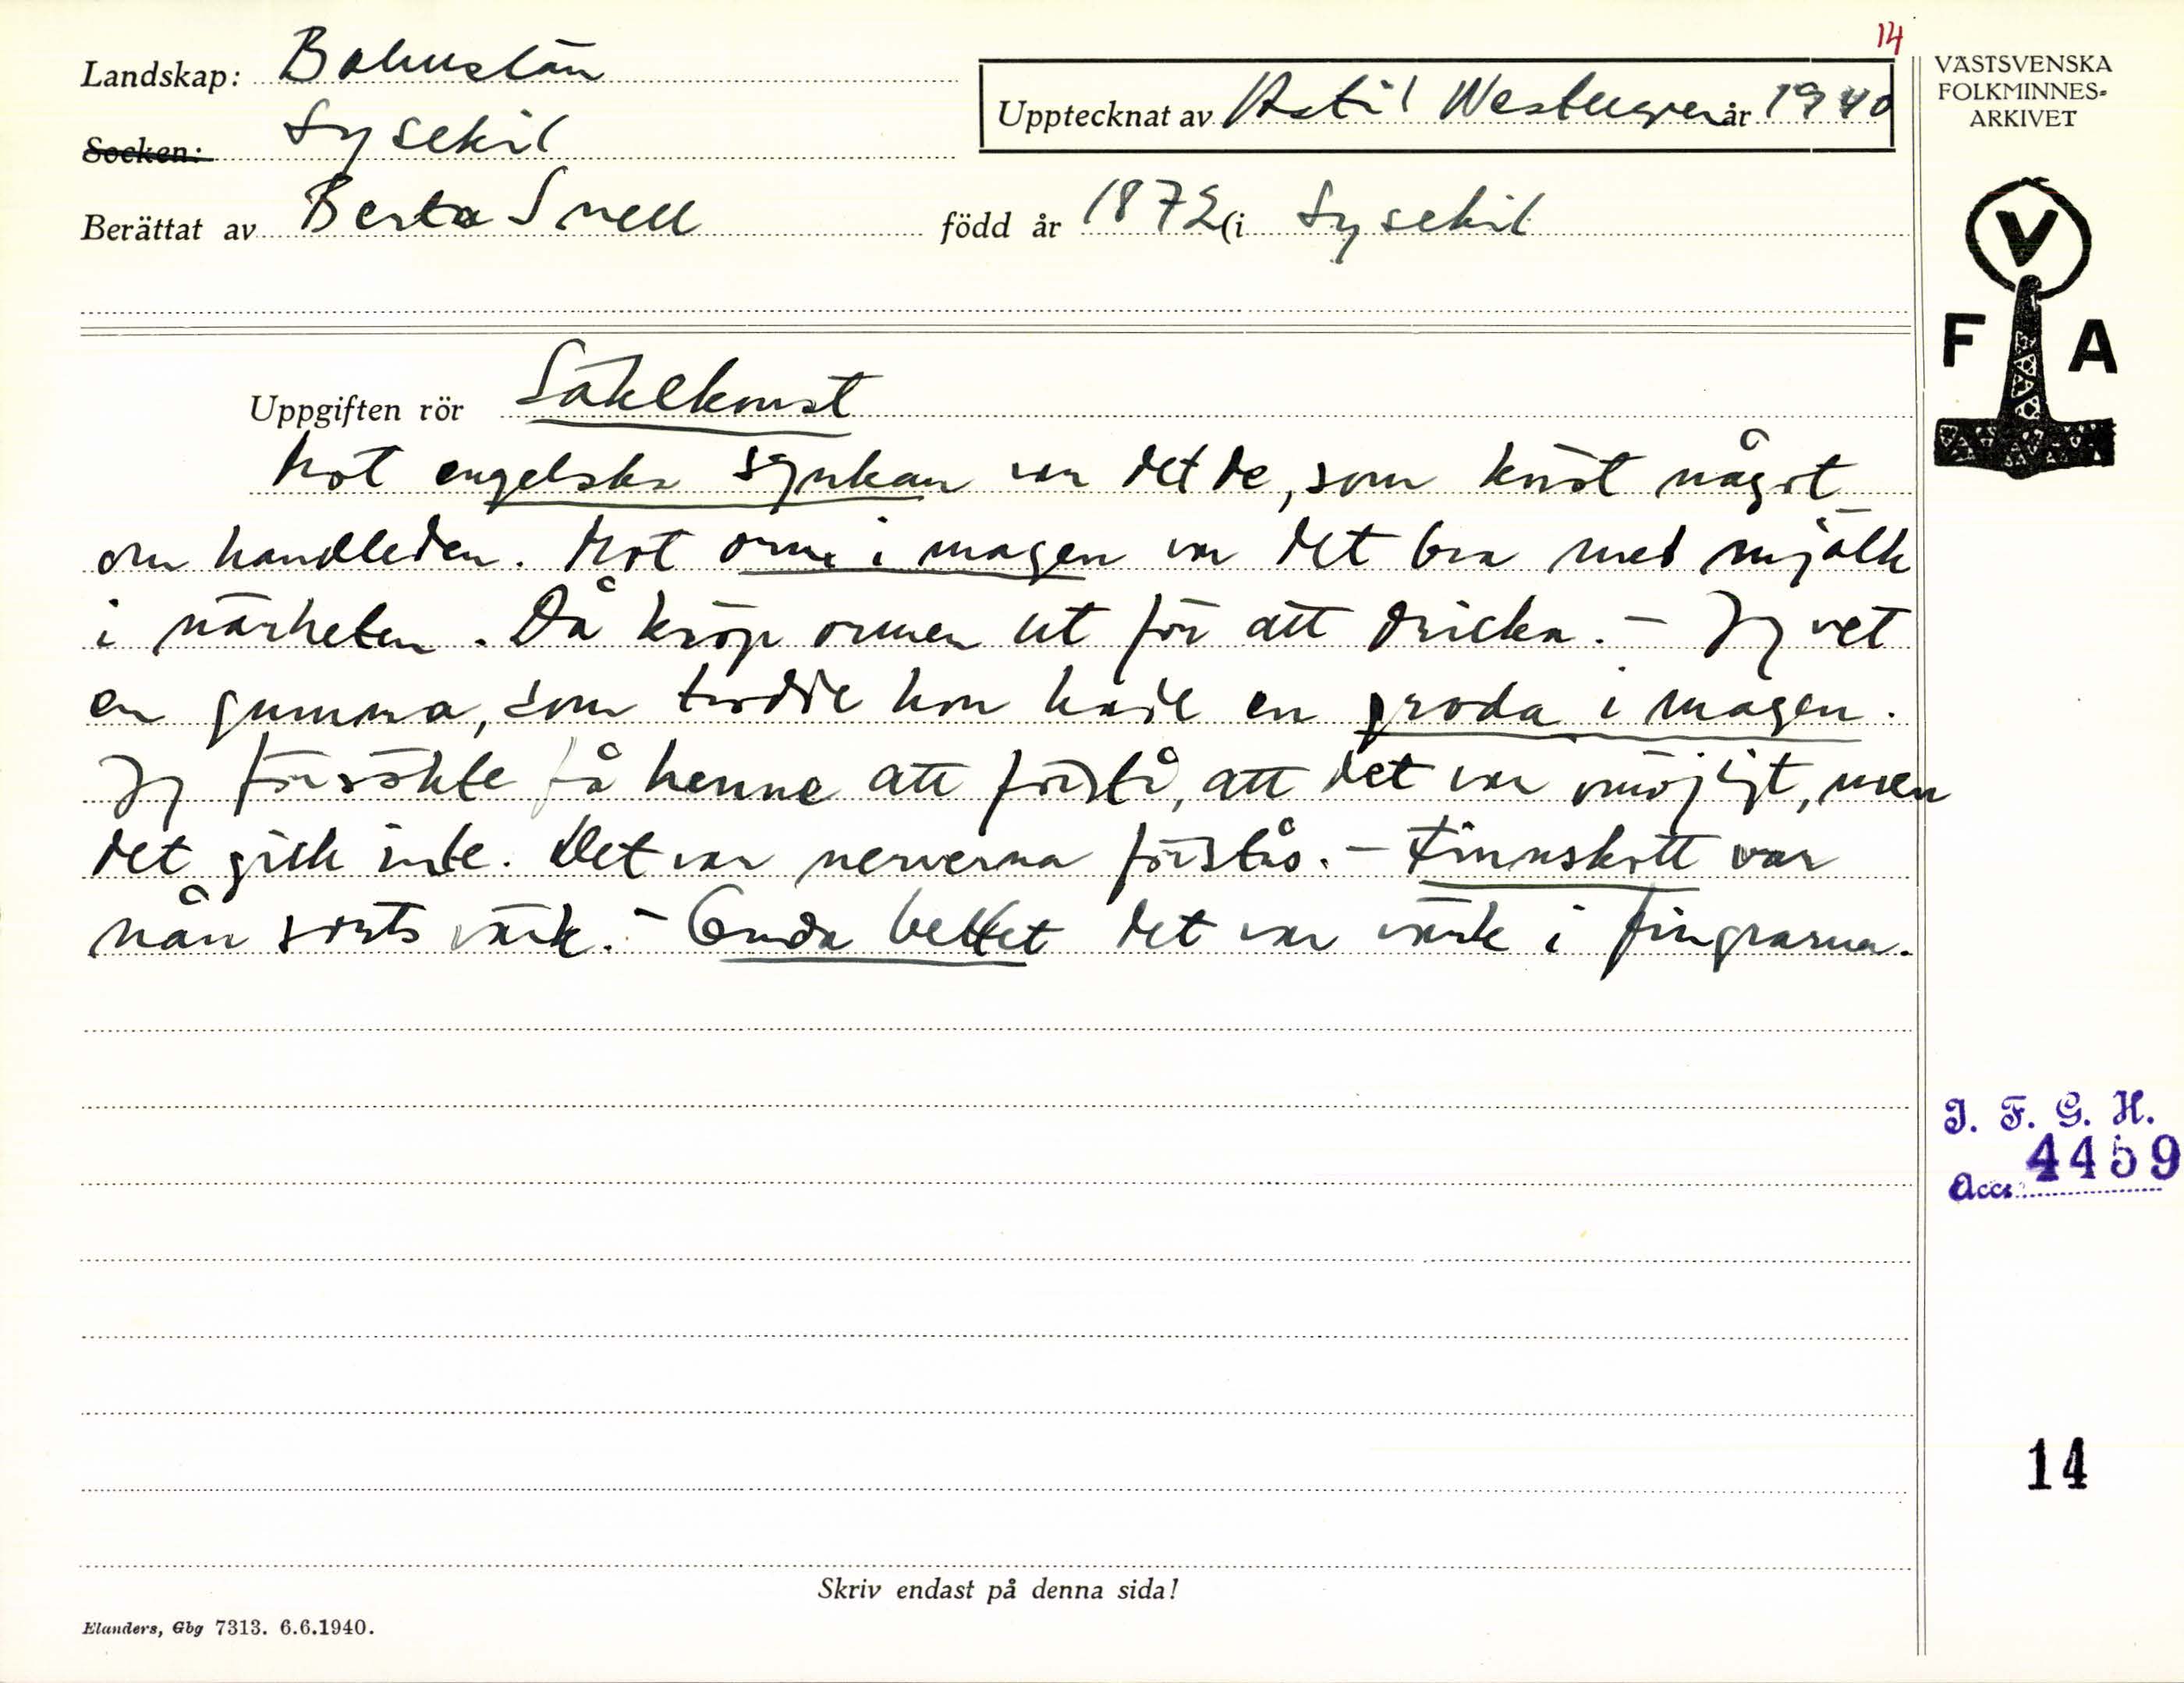 14
Landskap: Bohuslän
Upptecknat av Astil Westergren år 1940
VÄSTSVENSKA
FOLKMINNES-
ARKIVET
Socken: Lysekil
Berättat av Berta Snell född år 1872 (i Lysekil
V
F A
Uppgiften rör Läkekonst
Mot engelska sjukan var det de, som knöt något
om handleden. Mot orm i magen var det bra med mjölk
i närheten. Då kröp ormen ut för att dricka. - Jag vet
en gumma, som trodde hon hade en groda i magen.
Jag försökte få henne att förstå, att det var omöjligt, men
det gick inte. Det var nerverna förstås. - Finnskott var
nån sorts värk. - Onda bettet det var värk i fingrarna.
I. F. G. H.
Acc. 4459
14
Skriv endast på denna sida!
Elanders, Gbg 7313. 6.6.1940.